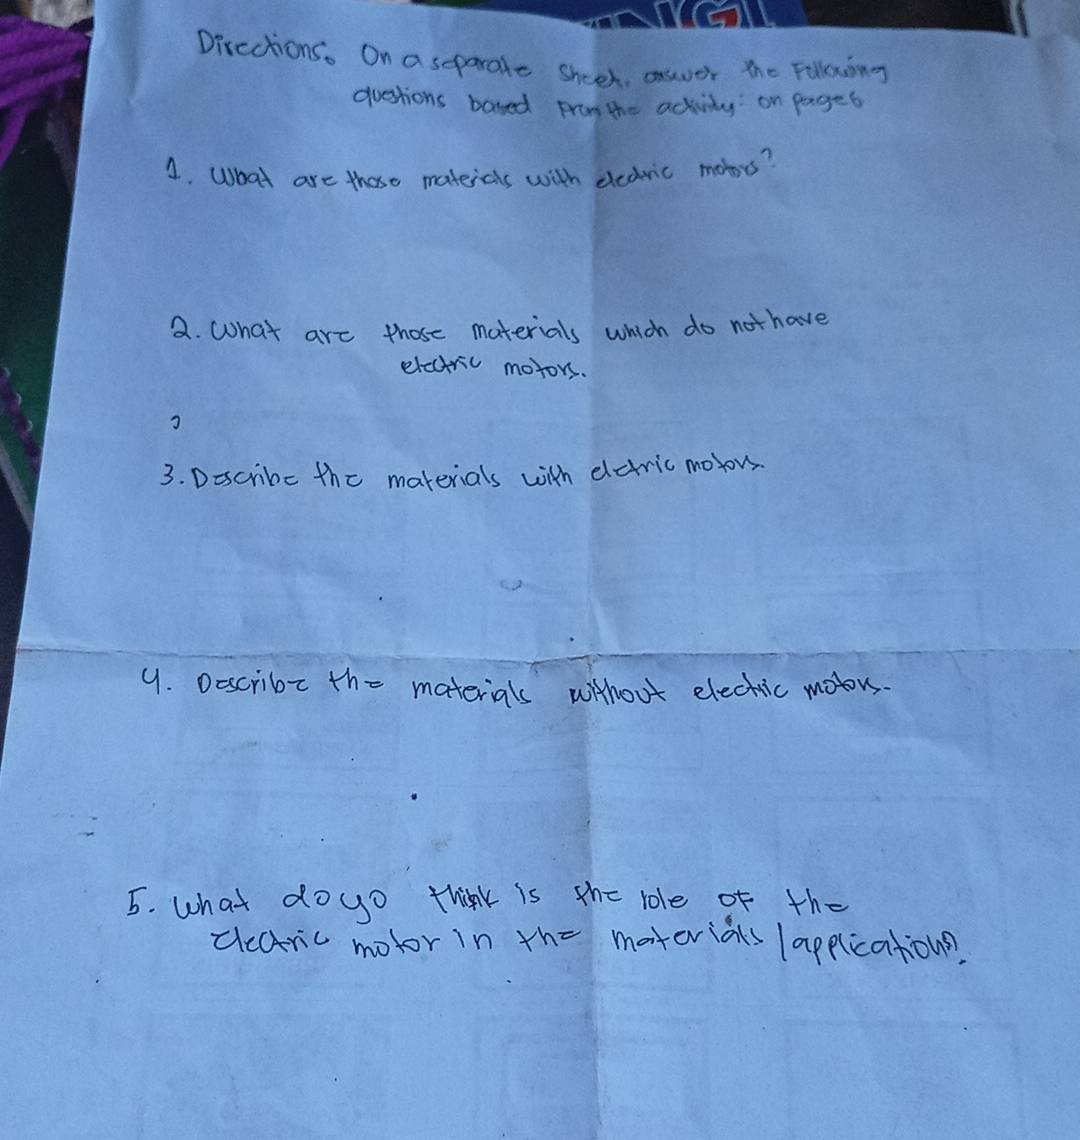 ING!
Directions. On a separate sheet, answer the Following
questions based From the activity: on pages
1. What are those materials with electric motors?
2. What are those materials which do not have
electric motors.
?
3. Describe the materials with eletric motors.
4. Describe the materials without electric motors.
5. What do yo think is the role of the
electric motor in the materials / applications?